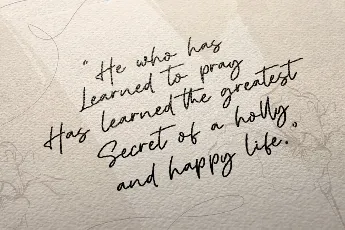 "He who has
Learned to pray
Has learned the greatest
Secret of a holly
and happy life."